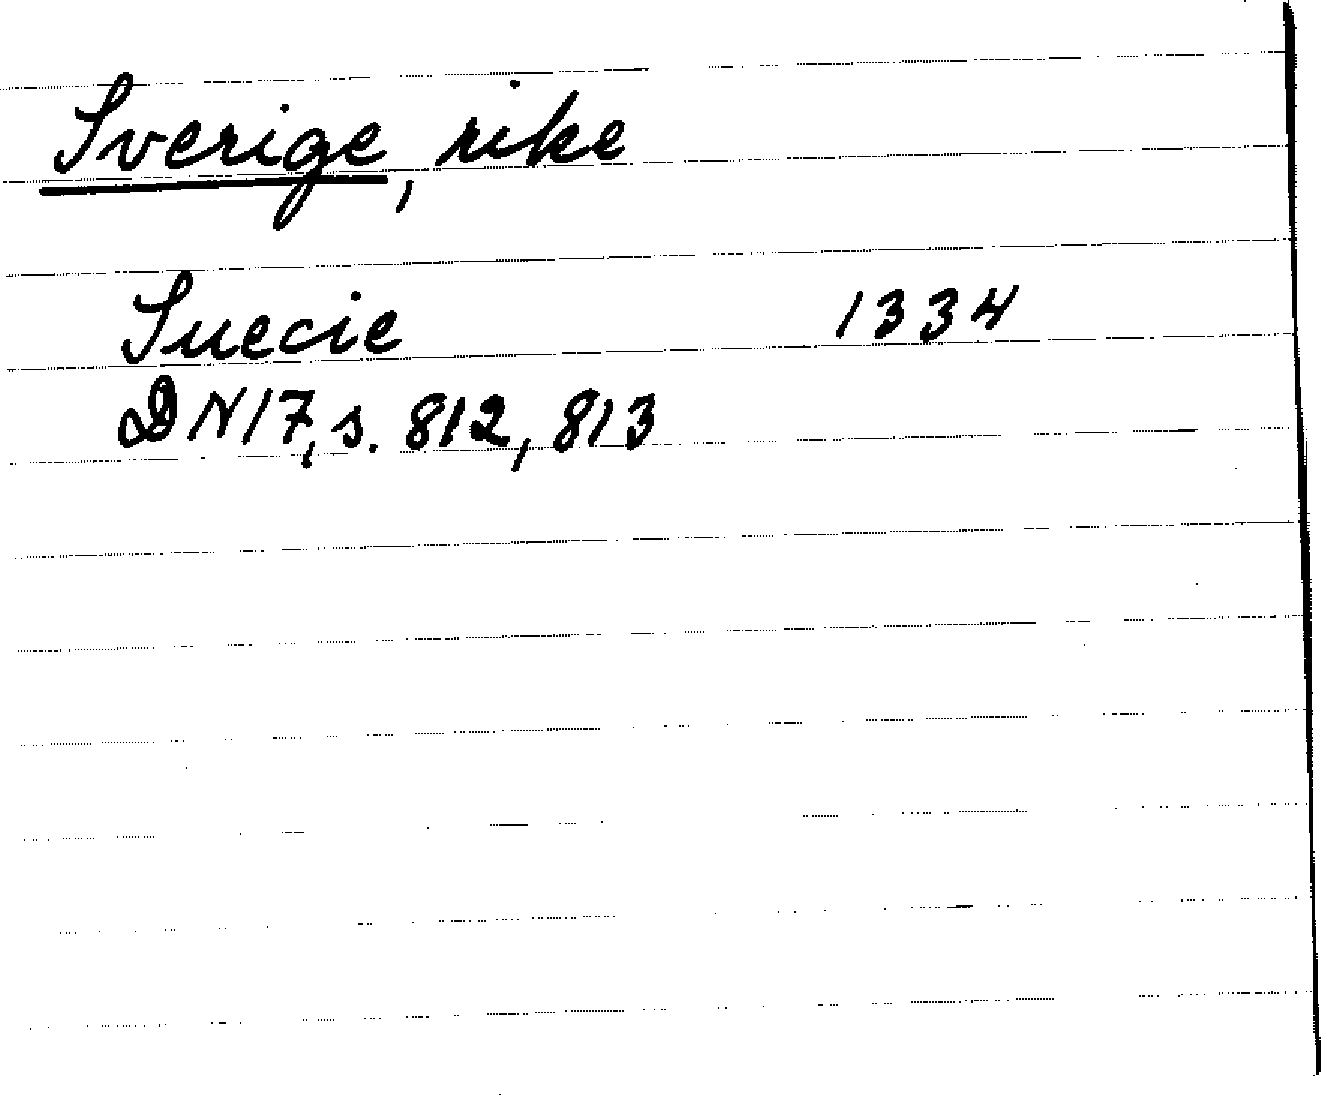 Sverige, rike
Suecie 1334
DN17, s. 812, 813